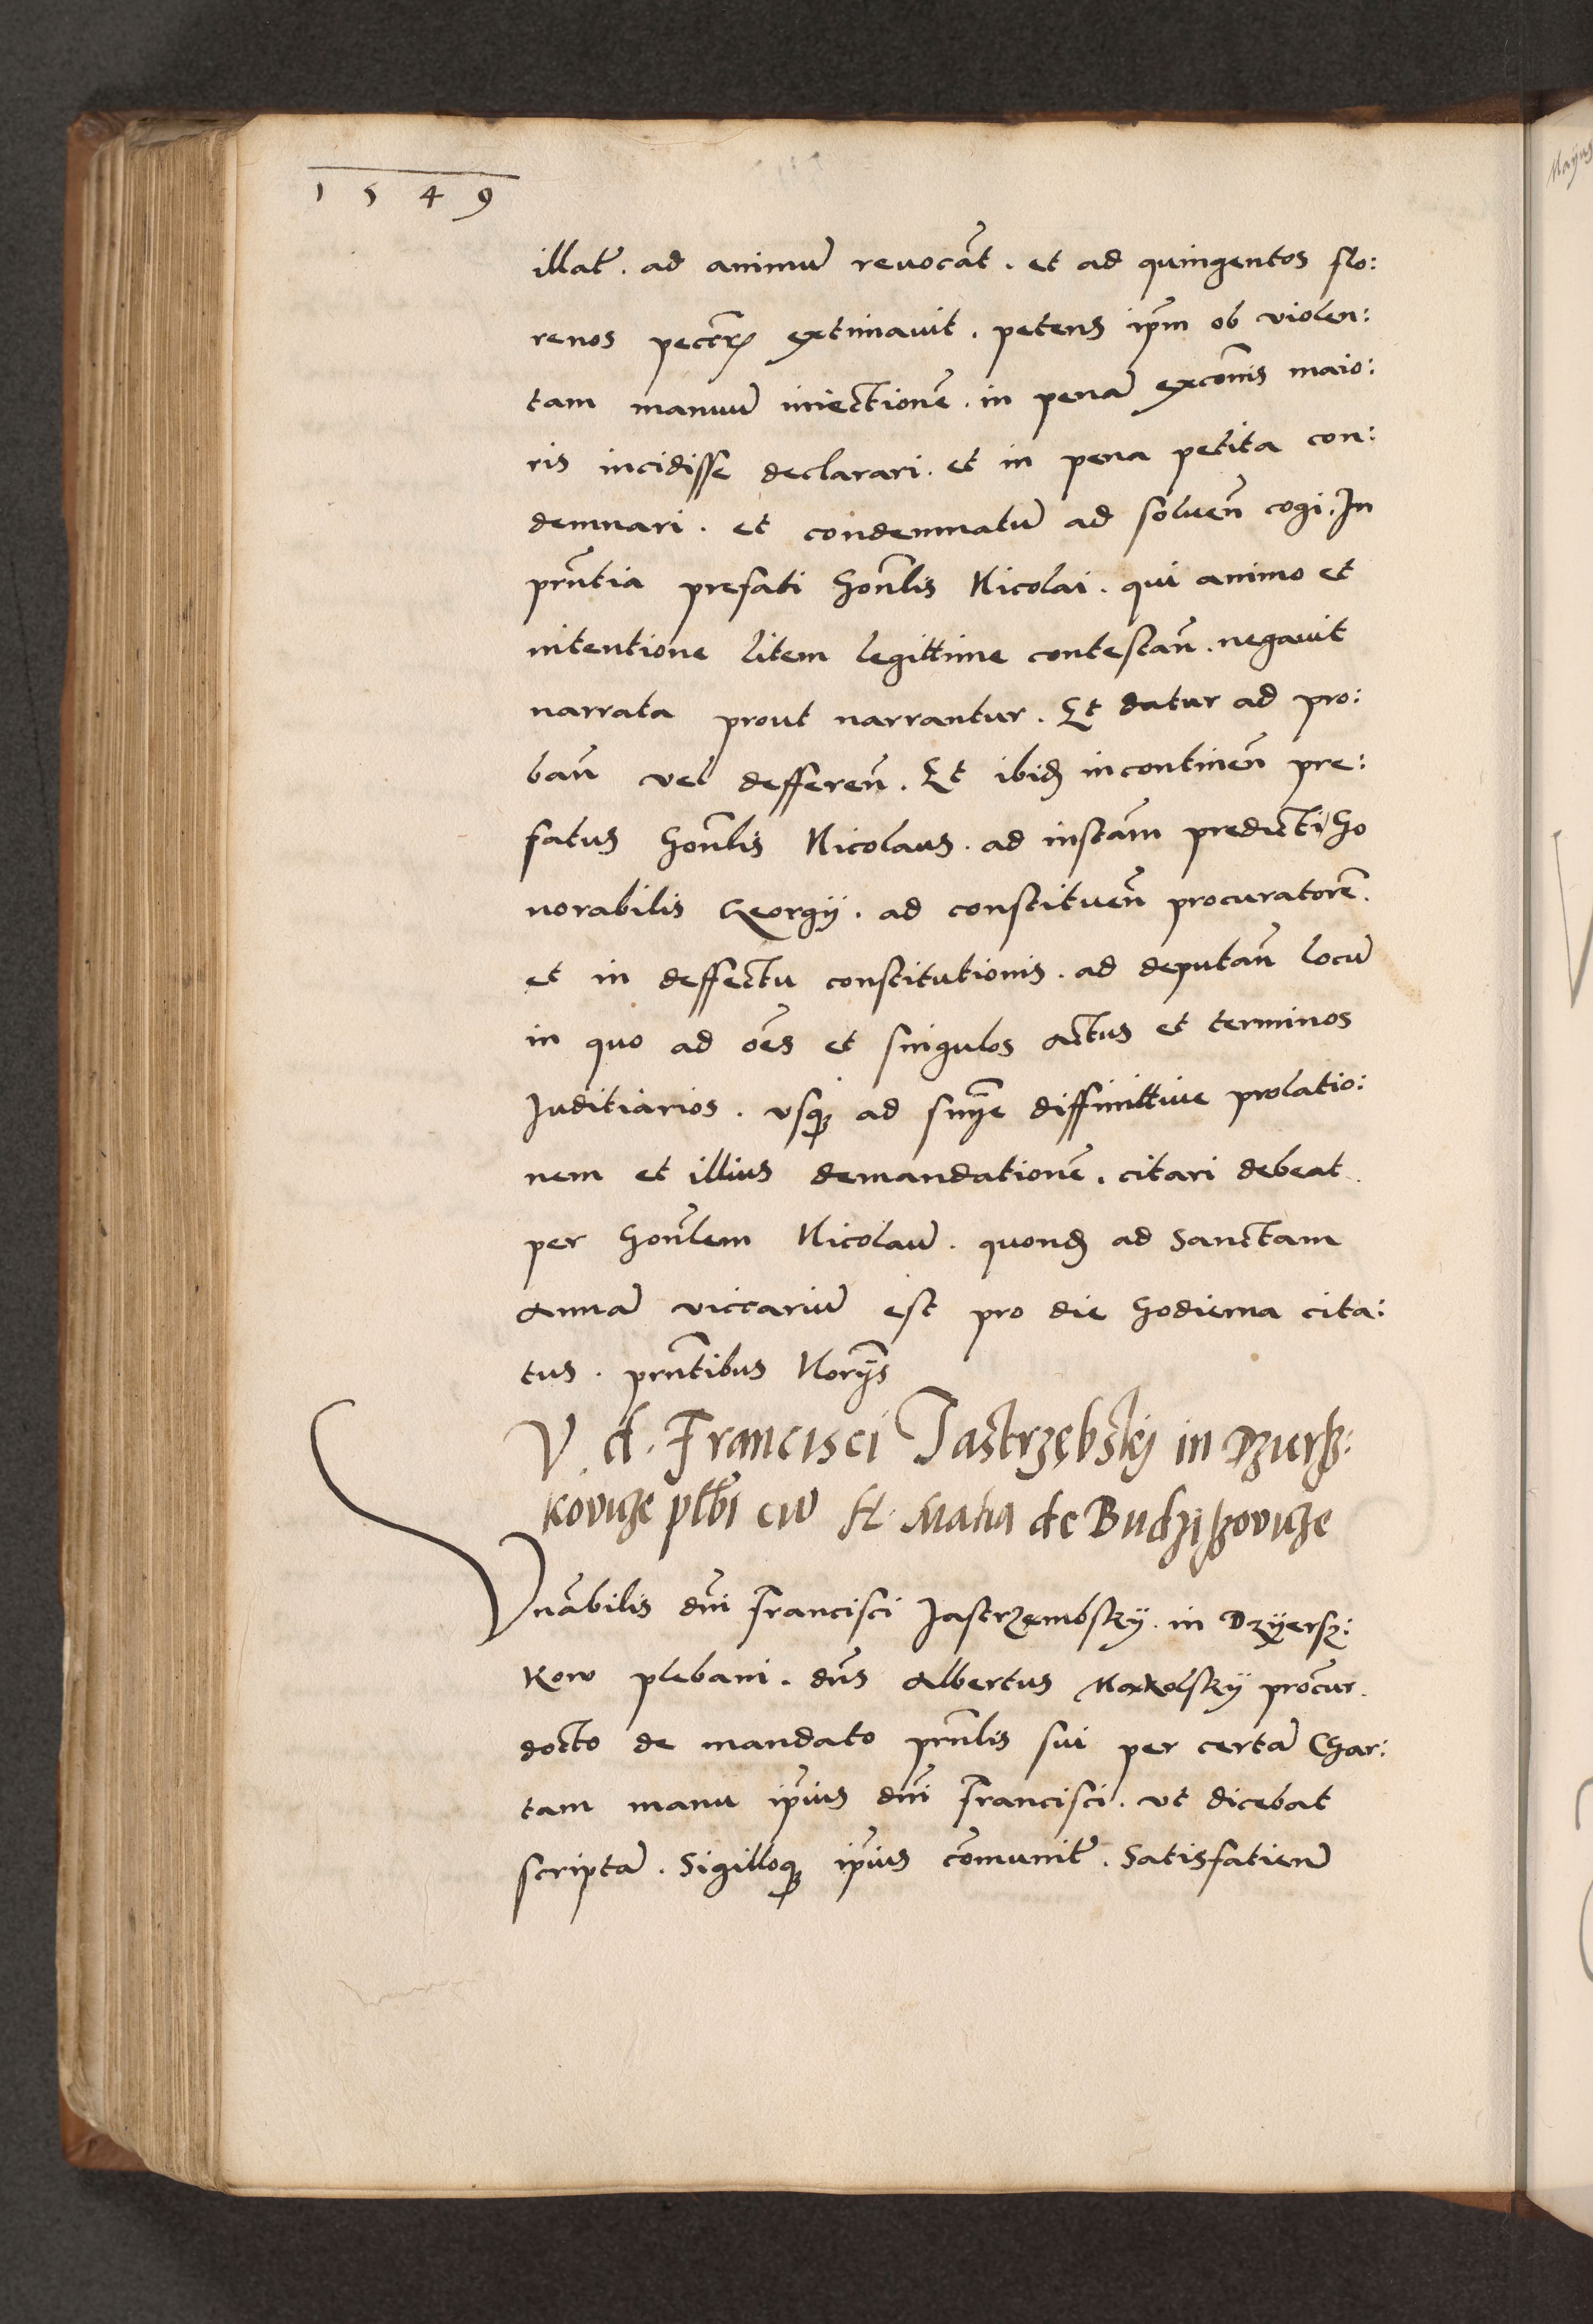 1549
illat̃. ad animũ reuocãt. et ad quingentos flo:
renos peccꝝ extimauit. petens ip̃m ob violen:
tam manuũ iniectionẽ. in penã excom̃is maio:
ris incidisse declarari. et in pena petita con:
demnari. et condemnatũ ad soluen̄ cogi. In
prñtia prefati hon̄lis Nicolai. qui animo et
intentione litem legittime contestan̄. negauit
narrata prout narrantur. Et datur ad pro:
ban̄ vel defferen̄. Et ibid̃ incontinen̄ pre:
fatus hon̄lis Nicolaus. ad instãm predicti ho
norabilis Georgij. ad constituen̄ procuratorẽ.
et in deffectu constitutionis. ad deputan̄ locũ
in quo ad oẽs et singulos actus et terminos
Juditiarios. vsq̃ ad sn̄ye diffinittiue prolatio:
nem et illius demandationẽ. citari debeat.
per hon̄lem Nicolaũ. quond̃ ad Sanctam
Annã viccariũ est pro die hodierna cita:
tus. prñtibus Norijs
V. d. Francisci Jastrzębskij in Dzierß:
kovicze pl̃bi cũ Matia de Budziszovicze
Vnãbilis dñi Francisci Jastrzembskÿ. in Dzÿersz:
kow plebani. dñs Albertus Nakolskÿ procur.
docto de mandato prñlis sui per certã Char:
tam manu ip̃ius dñi Francisci. vt dicebat
scriptã. Sigilloq̃ ip̃ius cõmunit̃. Satisfatienď
Maijus